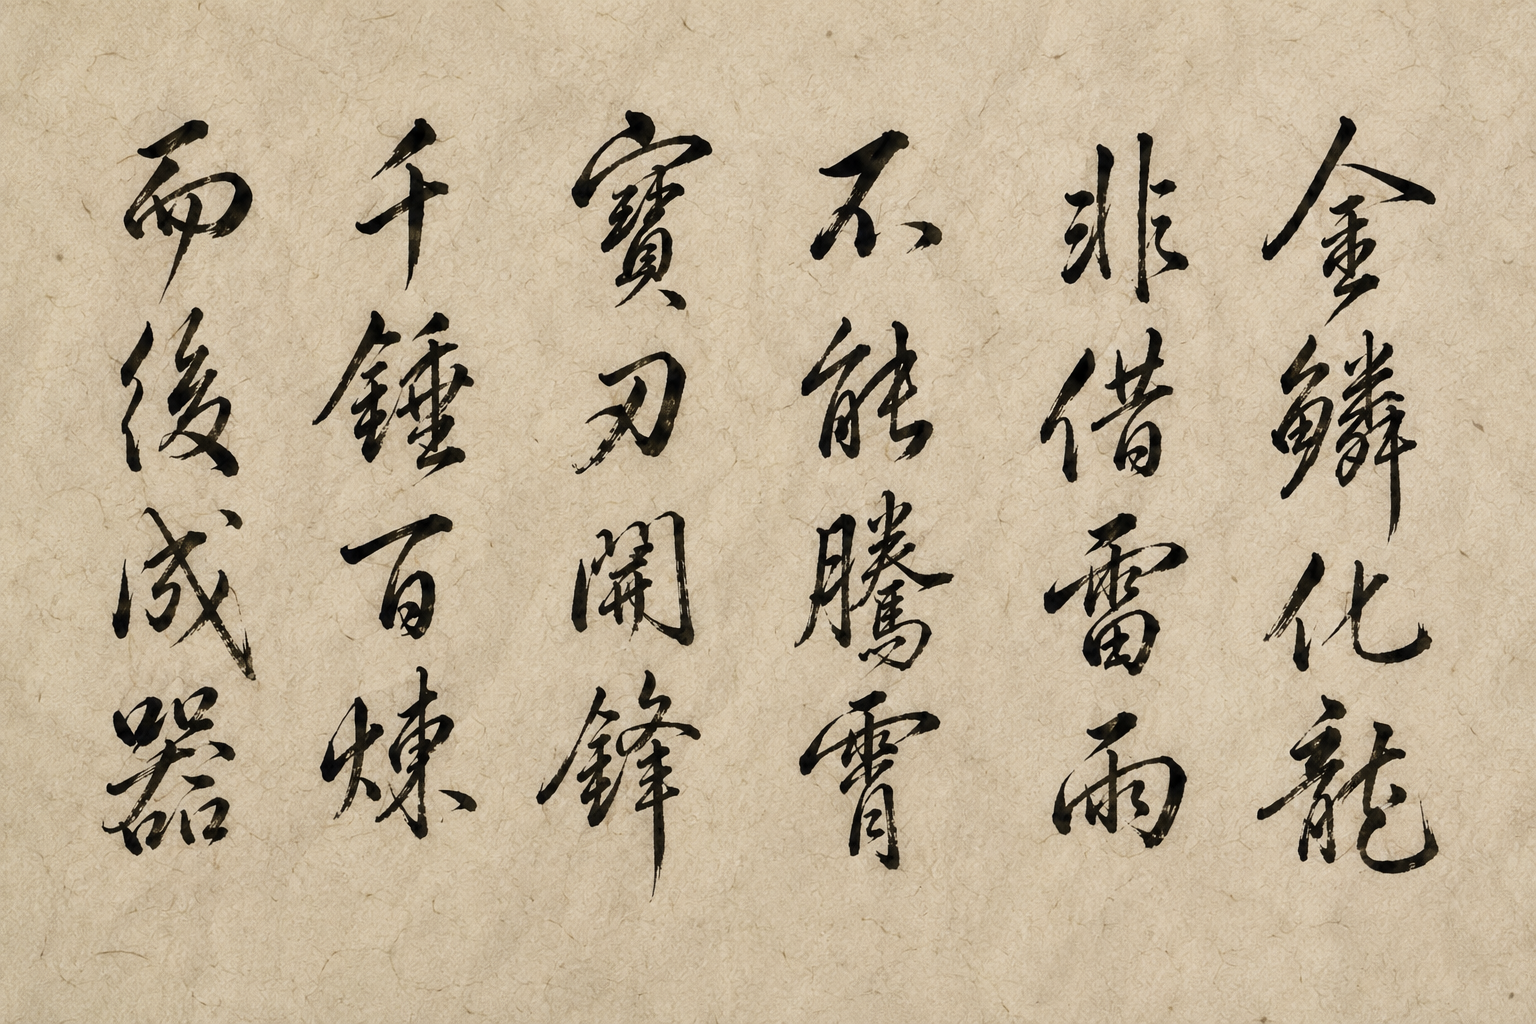 金鱗化龍
非借雷雨
不能騰霄
寶刃開鋒
千錘百煉
而後成器